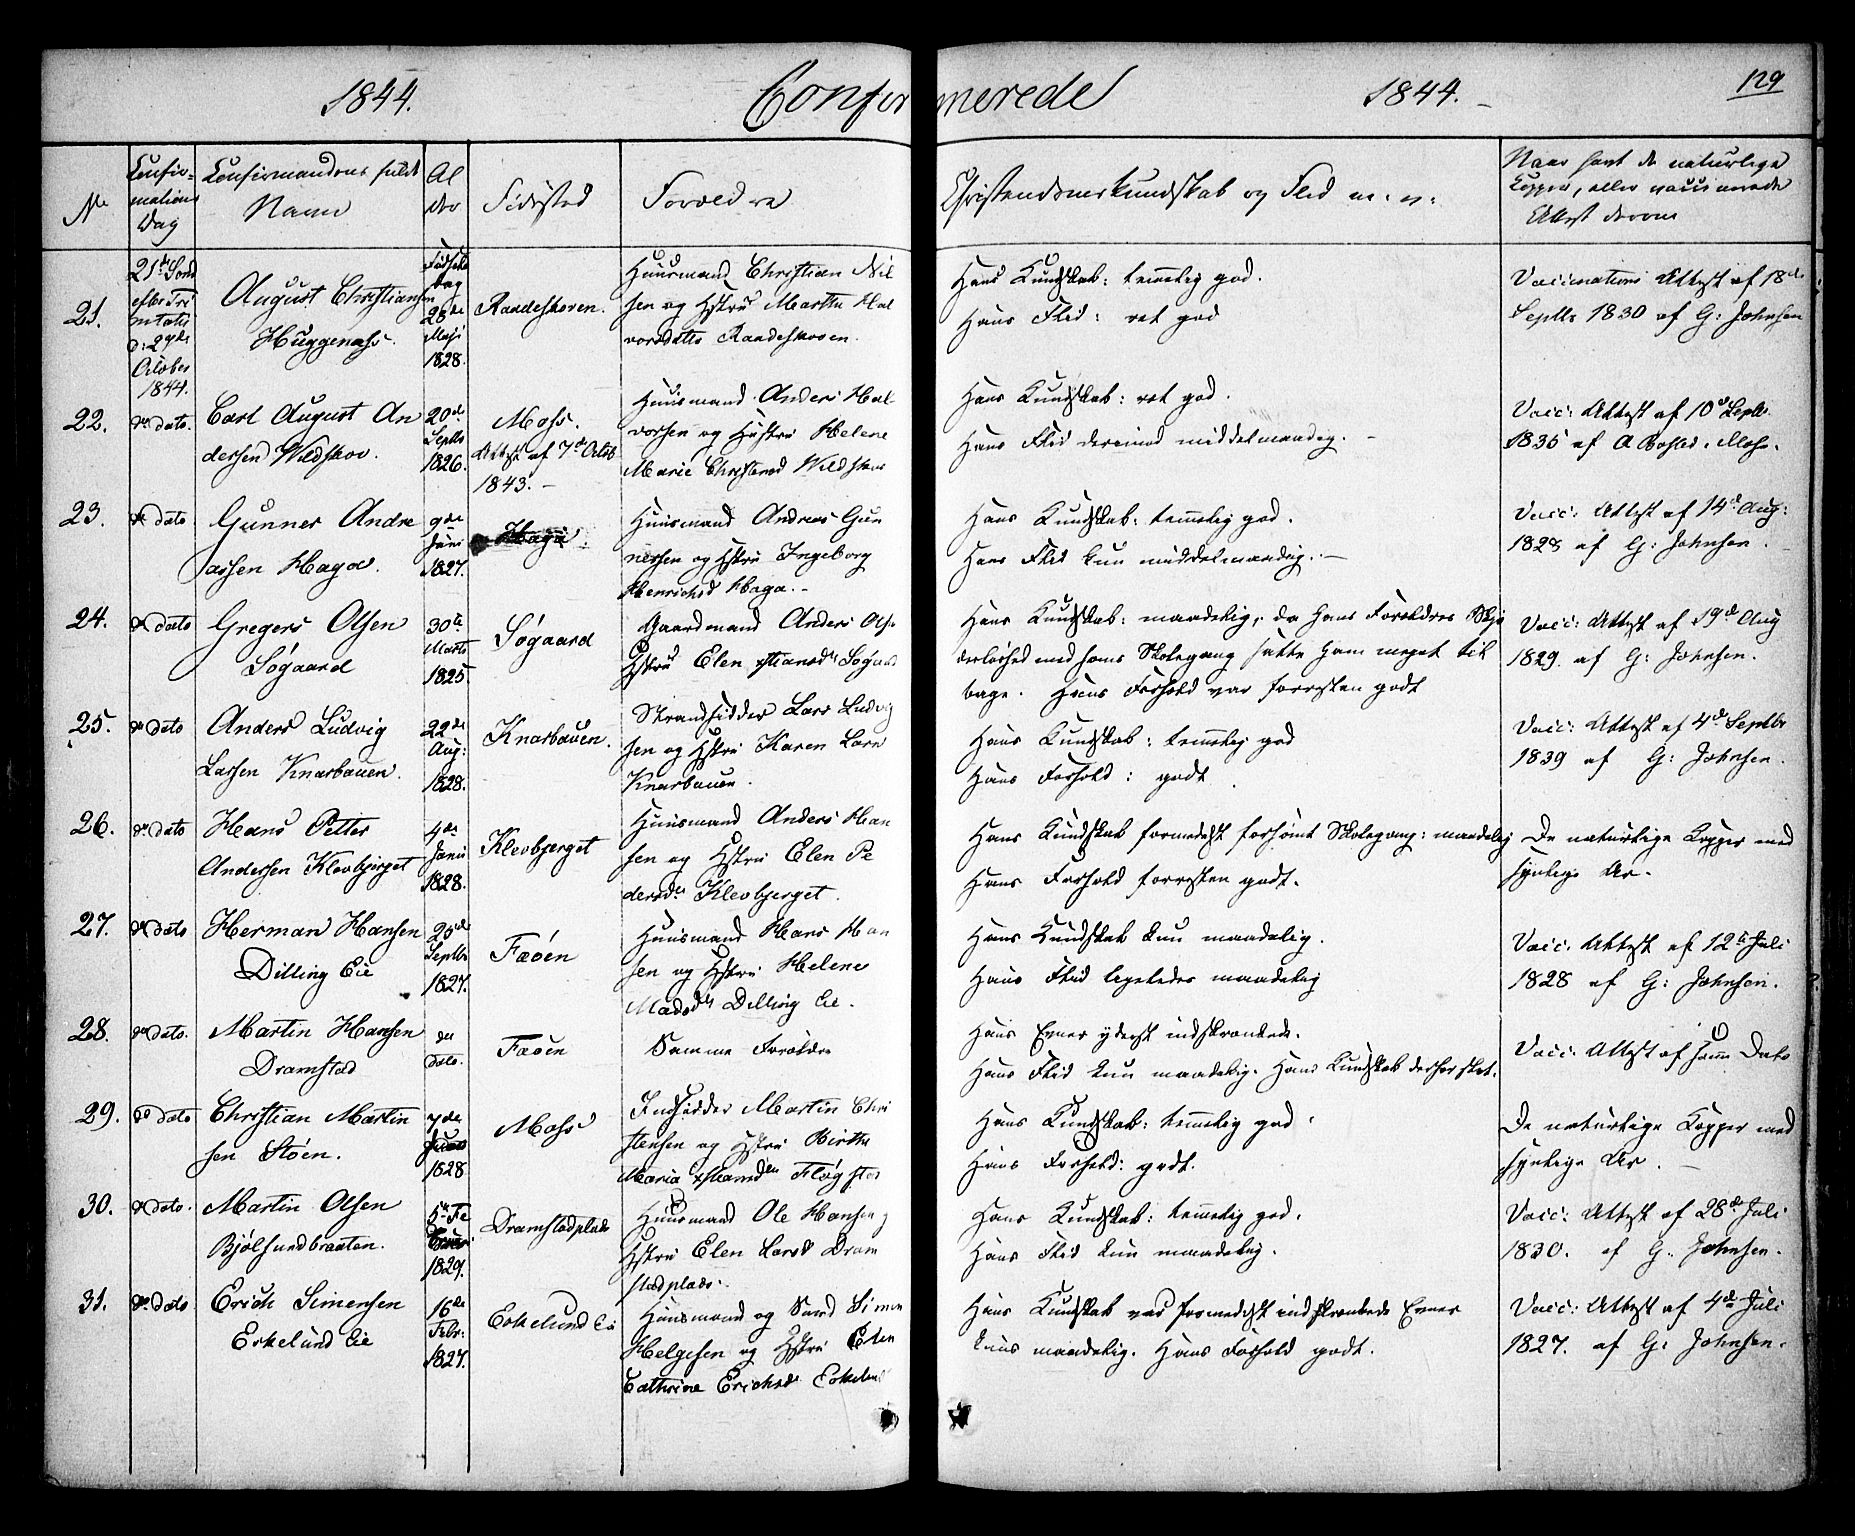 1844. Confirmerede 1844. 129
No
Confir-
mations
Dag
Confirmandens fulde
Navn
Al
der
Fødested
Forældre
Christendomskundskab og Flid m. v:
Naar havt de naturlige
Kopper, eller vaccinerede
Attest derom
21.
21de Sønd
efter Tri
nitatis
d: 27de
October
1844.
August Christiansen
Huggenæss.
Fødsels
dag
28de
Maji
1828.
Raadeskoven.
Huusmand Christian Nil
sen og Hstru Marthe Hal
vorsdatter Raadeskoven.
Hans Kundskab: temmelig god.
Hans Flid: ret god
Vaccinations Attest af 18de
Septbr 1830 af G: Johnsen
22.
do dato.
Carl August An
dersen Wildskov.
20de
Septbr
1826.
Moss.
Attest af 7de Octob
1843. -
Huusmand Anders Hal
vorsen og Hustru Helene
Marie Christensd Wildskov
Hans Kundskab: ret god.
Hans Flid derimod middelmaadig. -
Vacc: Attest af 10d Septbr.
1835 af Moss.
23.
do dato
Gunner Andre
assen Haga.
9de
Juni
1827.
Haga.
Huusmand Andreas Gun
nersen og Hstru Ingeborg
Henrichsd Haga. -
Hans Kundskab: temmelig god.
Hans Flid kun middelmaadig. -
Vacc: Attest af 14d Aug:
1828 af G: Johnsen.
24.
do dato
Gregers Olsen
Søgaard
30te
Marts
1825.
Søgaard
Gaardmand Anders Ols
Hstru Elen Søgaard
Hans Kundskab: maadelig, da hans Forældres Skjø
desløshed med hans Skolegang satte ham meget til
bage. Hans Forhold var forresten godt
Vacc: Attest af 19d Aug
1829. af G: Johnsen.
25.
do dato
Anders Ludvig
Larsen Knarbauen.
22de
Aug:
1828.
Knarbauen.
Strandsidder Lars Ludvig
sen og Hstru Karen Lars
Knarbauen.
Hans Kundskab: temmelig god
Hans Forhold: godt.
Vacc: Attest af 4de Septbr
1839 af G: Johnsen.
26.
do dato
Hans Petter
Andersen Klevbjerget
4de
Juni
1828.
Klevbjerget
Huusmand Anders Han
sen og Hstru Elen Pe
dersdr Klevbjerget.
Hans Kundskab formedelst forsømt Skolegang: maadelig
Hans Forhold forresten godt.
De naturlige Kopper med
synlige Ar.
27.
do dato
Herman Hansen
Dilling Eie
25de
Septbr
1827.
Faøen
Huusmand Hans Han
sen og Hstru Helene
Madsdr Dilling Eie.
Hans Kundskab kun maadelig.
Hans Flid ligeledes maadelig
Vacc: Attest af 12te Juli
1828 af G: Johnsen.
28.
do dato.
Martin Hansen
Dramstad
do
dato.
Faøen
Samme Forældre
Hans Evner yderst indskrænkede.
Hans Flid kun maadelig. Hans Kundskab derfor slet.
Vacc: Attest af samme Dato
29.
do dato
Christian Martin
sen Støen.
7de
1828
Moss
Indsidder Martin Chri
stensen og Hstru Birthe
Maria
Hans Kundskab: temmelig god.
Hans Forhold: godt.
De naturlige Kopper med
synlige Ar. -
30.
do dato.
Martin Olsen
Bjølsundbraaten.
5te Fe
bruar
1829.
Dramstadplads
Huusmand Ole Hansen og
Hstru Elen Larsd Dram
stadplads.
Hans Kundskab: temmelig god.
Hans Flid kun maadelig.
Vacc: Attest af 28de Juli
1830. af G. Johnsen.
31.
do dato.
Erich Simensen
Eskelund Eie
16de
Febr:
1827.
Eskelund Eie
Huusmand og Smed Simen
Helgesen og Hstru Elen
Cathrine Erichsdr Eskelund
Hans Kundskab var formedelst indskrænkede Evner
kuns maadelig. Hans Forhold godt.
Vacc: Attest af 4de Juli
1827. af G: Johnsen.